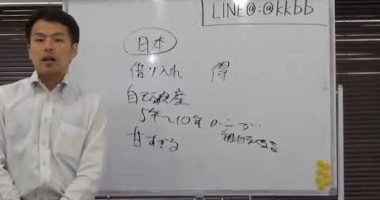 LINE@:@kkbb
日本
借り入れ 得
自己破産
5年〜10年
甘すぎる